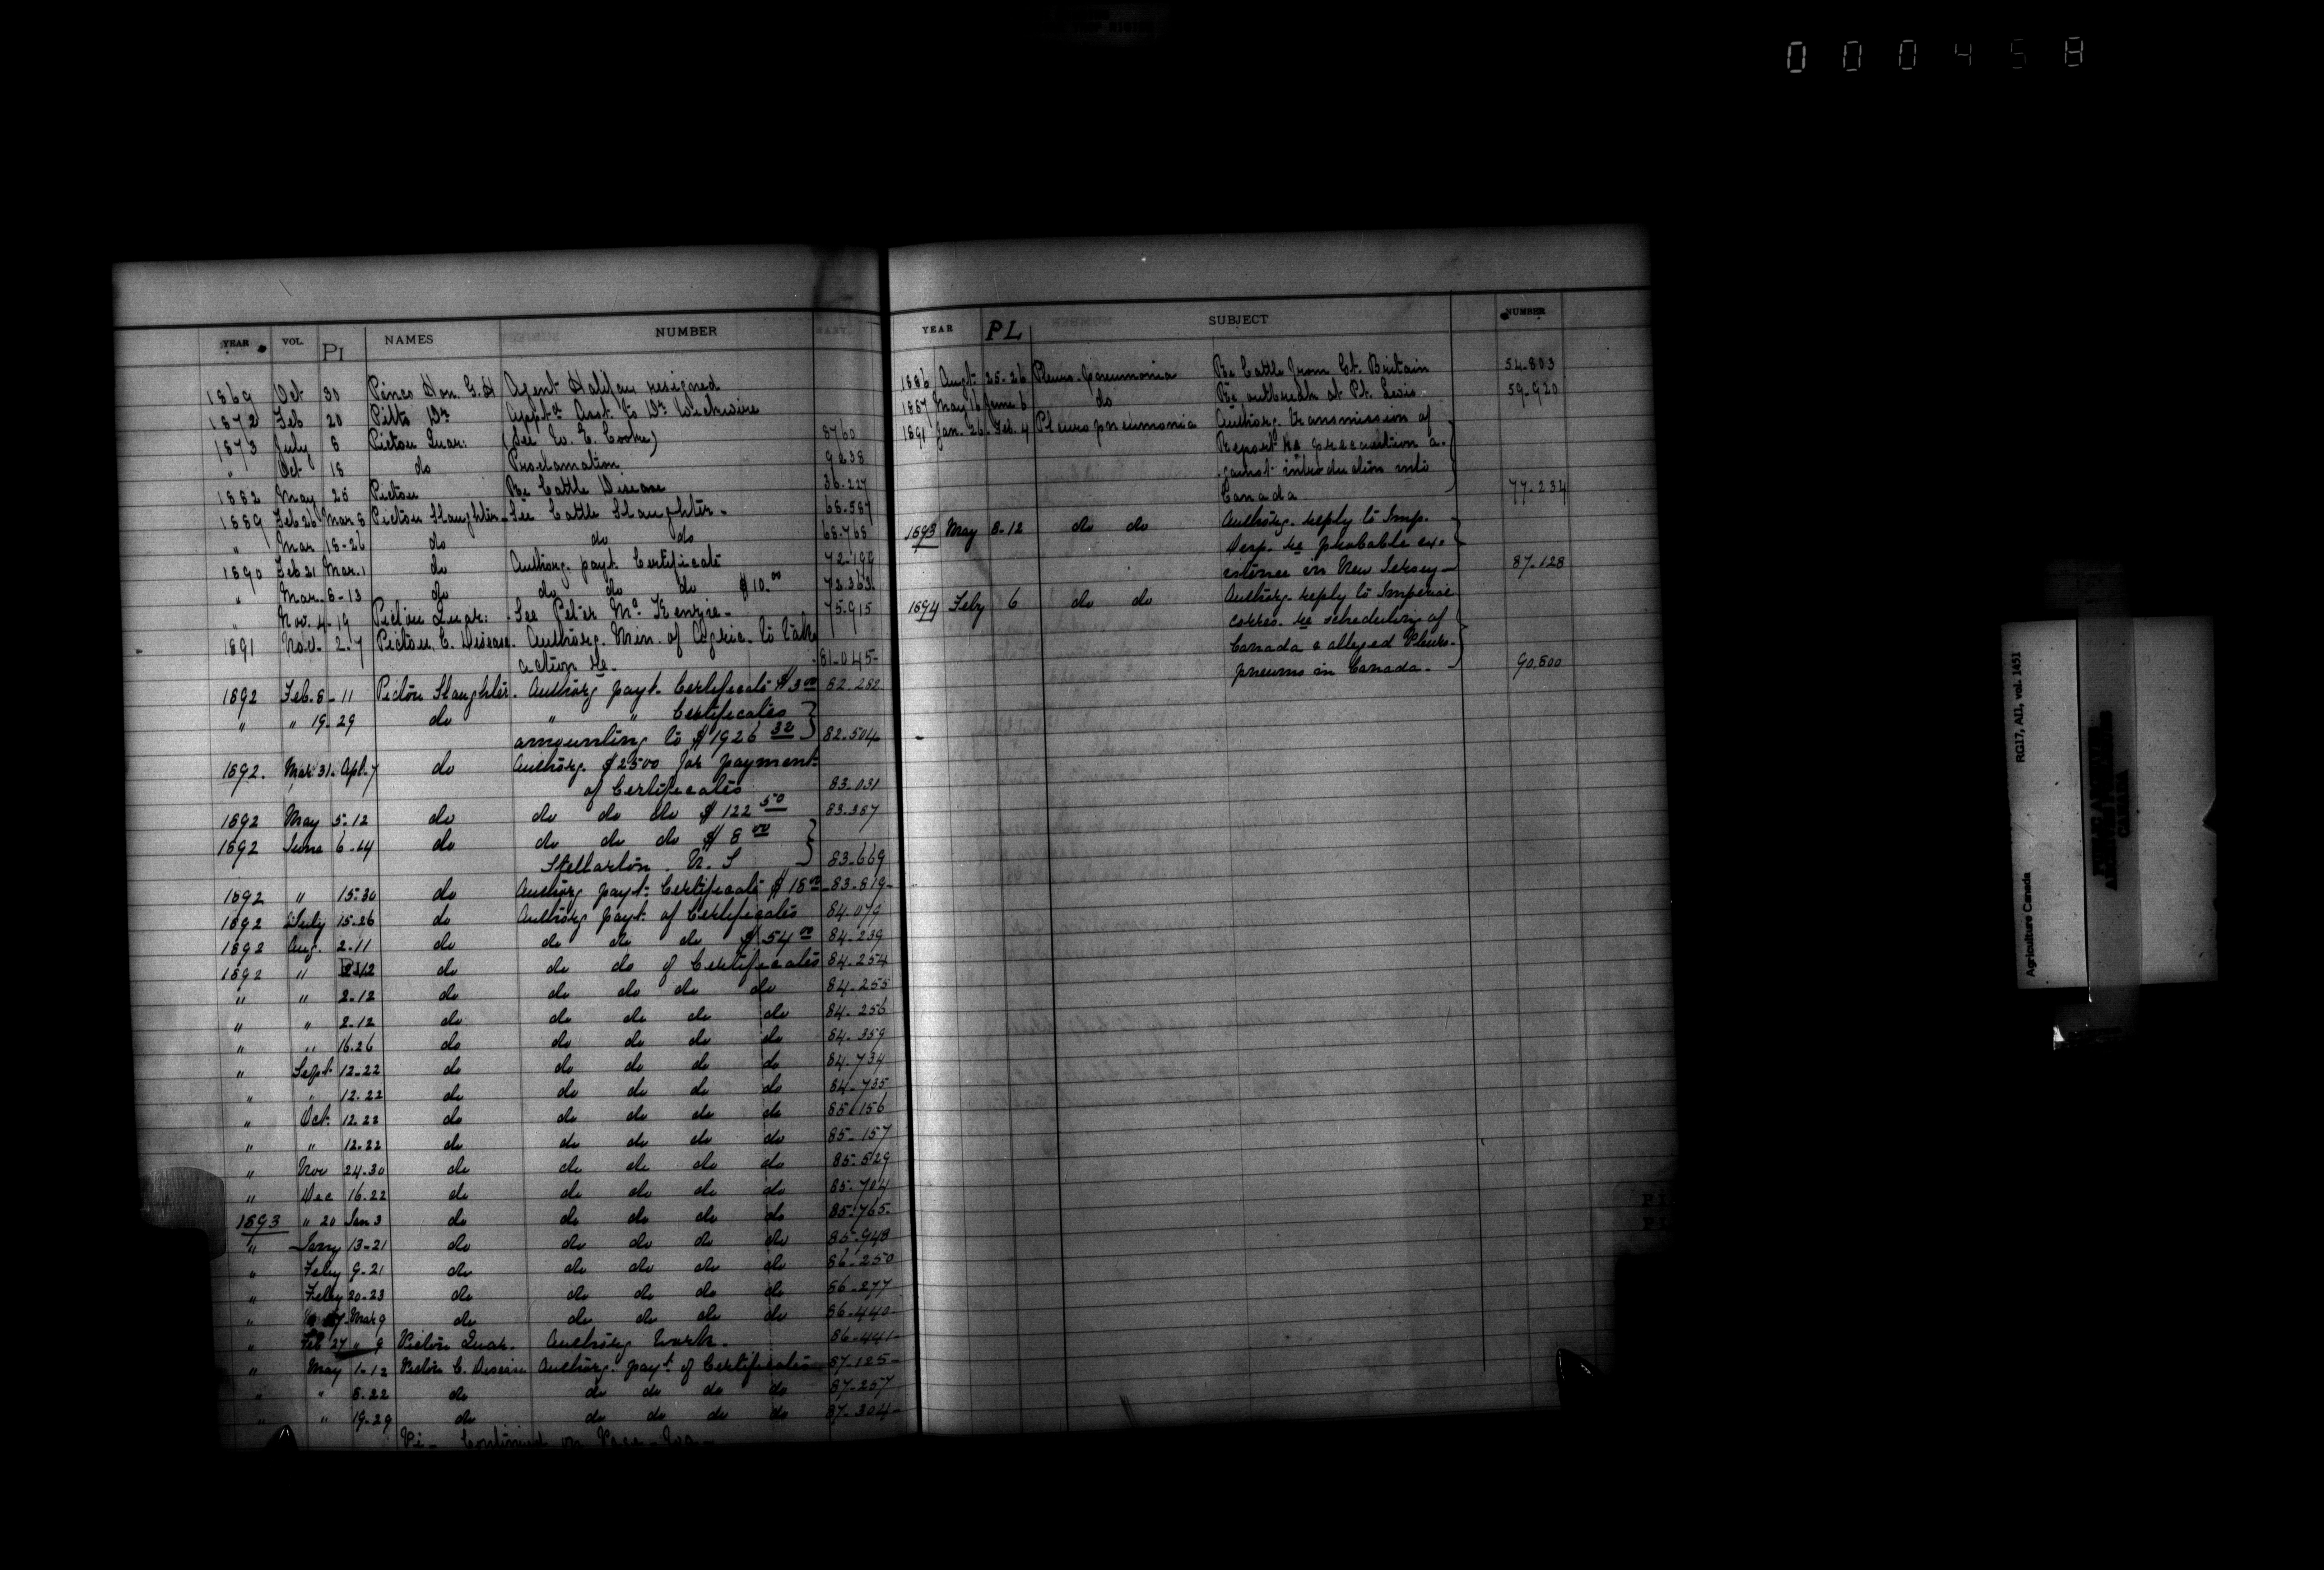 000458
YEAR VOL. PI NAMES NUMBER
1869 Oct 30 Hon. G. H Agent Halifax resigned
1872 Feb 20 Pitts Dr Appt Asst. to Dr Wickwire
1873 July 8 Pictou Quar: (See W. E. Cooke) 8760
" Oct 18 do Proclamation 9238
1882 May 25 Pictou Re Cattle Disease 36.227
1889 Feb 26 Mar 8 Pictou Slaughter. See Cattle Slaughter. 68.587
" Mar 18-26 do do do 68.768
1890 Feb 21 Mar. 1 do Authorg. payt. Certificate 72.199
" Mar. 8-13 do do do do $10.00 72.363
" Nov. 4-19 Pictou Quar: See Peter McKenzie. 75.915
1891 Nov. 2-7 Pictou C. Disease. Authorg. Min. of Agric. to take
action re. 81.045-
1892 Feb. 8-11 Pictou Slaughter. Authorg payt. Certificate $3.00 82.282
" " 19-29 do " " Certificates
amounting to $1926 32 82.504
1892. Mar 31. Apl. 7 do Authorg. $2500 for payment
of Certificates 83.031
1892 May 5-12 do do do do $122 50 83.367
1892 June 6-14 do do do do $8 00
Stellarton N. S 83.669
1892 " 15-30 do Authorg payt. Certificate $18 00 83.819
1892 July 15-26 do Authorg payt. of Certificates 84.079
1892 Aug. 2-11 do do do do $54 00 84.239
1892 " 2-12 do do do of Certificates 84.254
" " 2-12 do do do do do 84.255
" " 2-12 do do do do do 84.256
" " 16-26 do do do do do 84.359
" Sept 12-22 do do do do do 84.734
" " 12-22 do do do do do 84.735
" Oct. 12-22 do do do do do 85.156
" " 12-22 do do do do do 85.157
" Nov 24-30 do do do do do 85.529
" Dec 16-22 do do do do do 85.704
1893 " 20 Jan 3 do do do do do 85.765
" Jany 13-21 do do do do do 85.948
" Feby 9-21 do do do do do 86.250
" Feby 20-23 do do do do do 86.277
" Mar 9 do do do do do 86.440
" Feb 27 " 9 Pictou Quar. Authorg Work. 86.441
" May 1-12 Pictou C. Disease Authorg. payt. of Certificates 87.125
" " 8-22 do do do do do 87.257
" " 19-29 do do do do do 87.304
Pi- Continued on Page
YEAR PL SUBJECT NUMBER
1886 Augt. 25-26 Pleuro-pneumonia Re Cattle from Gt. Britain 54.803
1887 May 16 June 6 do Re outbreak at Pt. Levis 59.920
1891 Jan. 26. Feb. 4 Pleuro pneumonia Authorg. transmission of
Report re precaution a-
gainst introduction into
Canada 77.234
1893 May 8-12 do do Authorg. reply to Imp.
Desp. re probable ex-
istence in New Jersey 87.128
1894 Feby 6 do do Authorg. reply to Imperial
corres. re scheduling of
Canada & alleged Pleuro-
pneumo in Canada. 90.500
Agriculture Canada RG17, AI1, vol. 1451